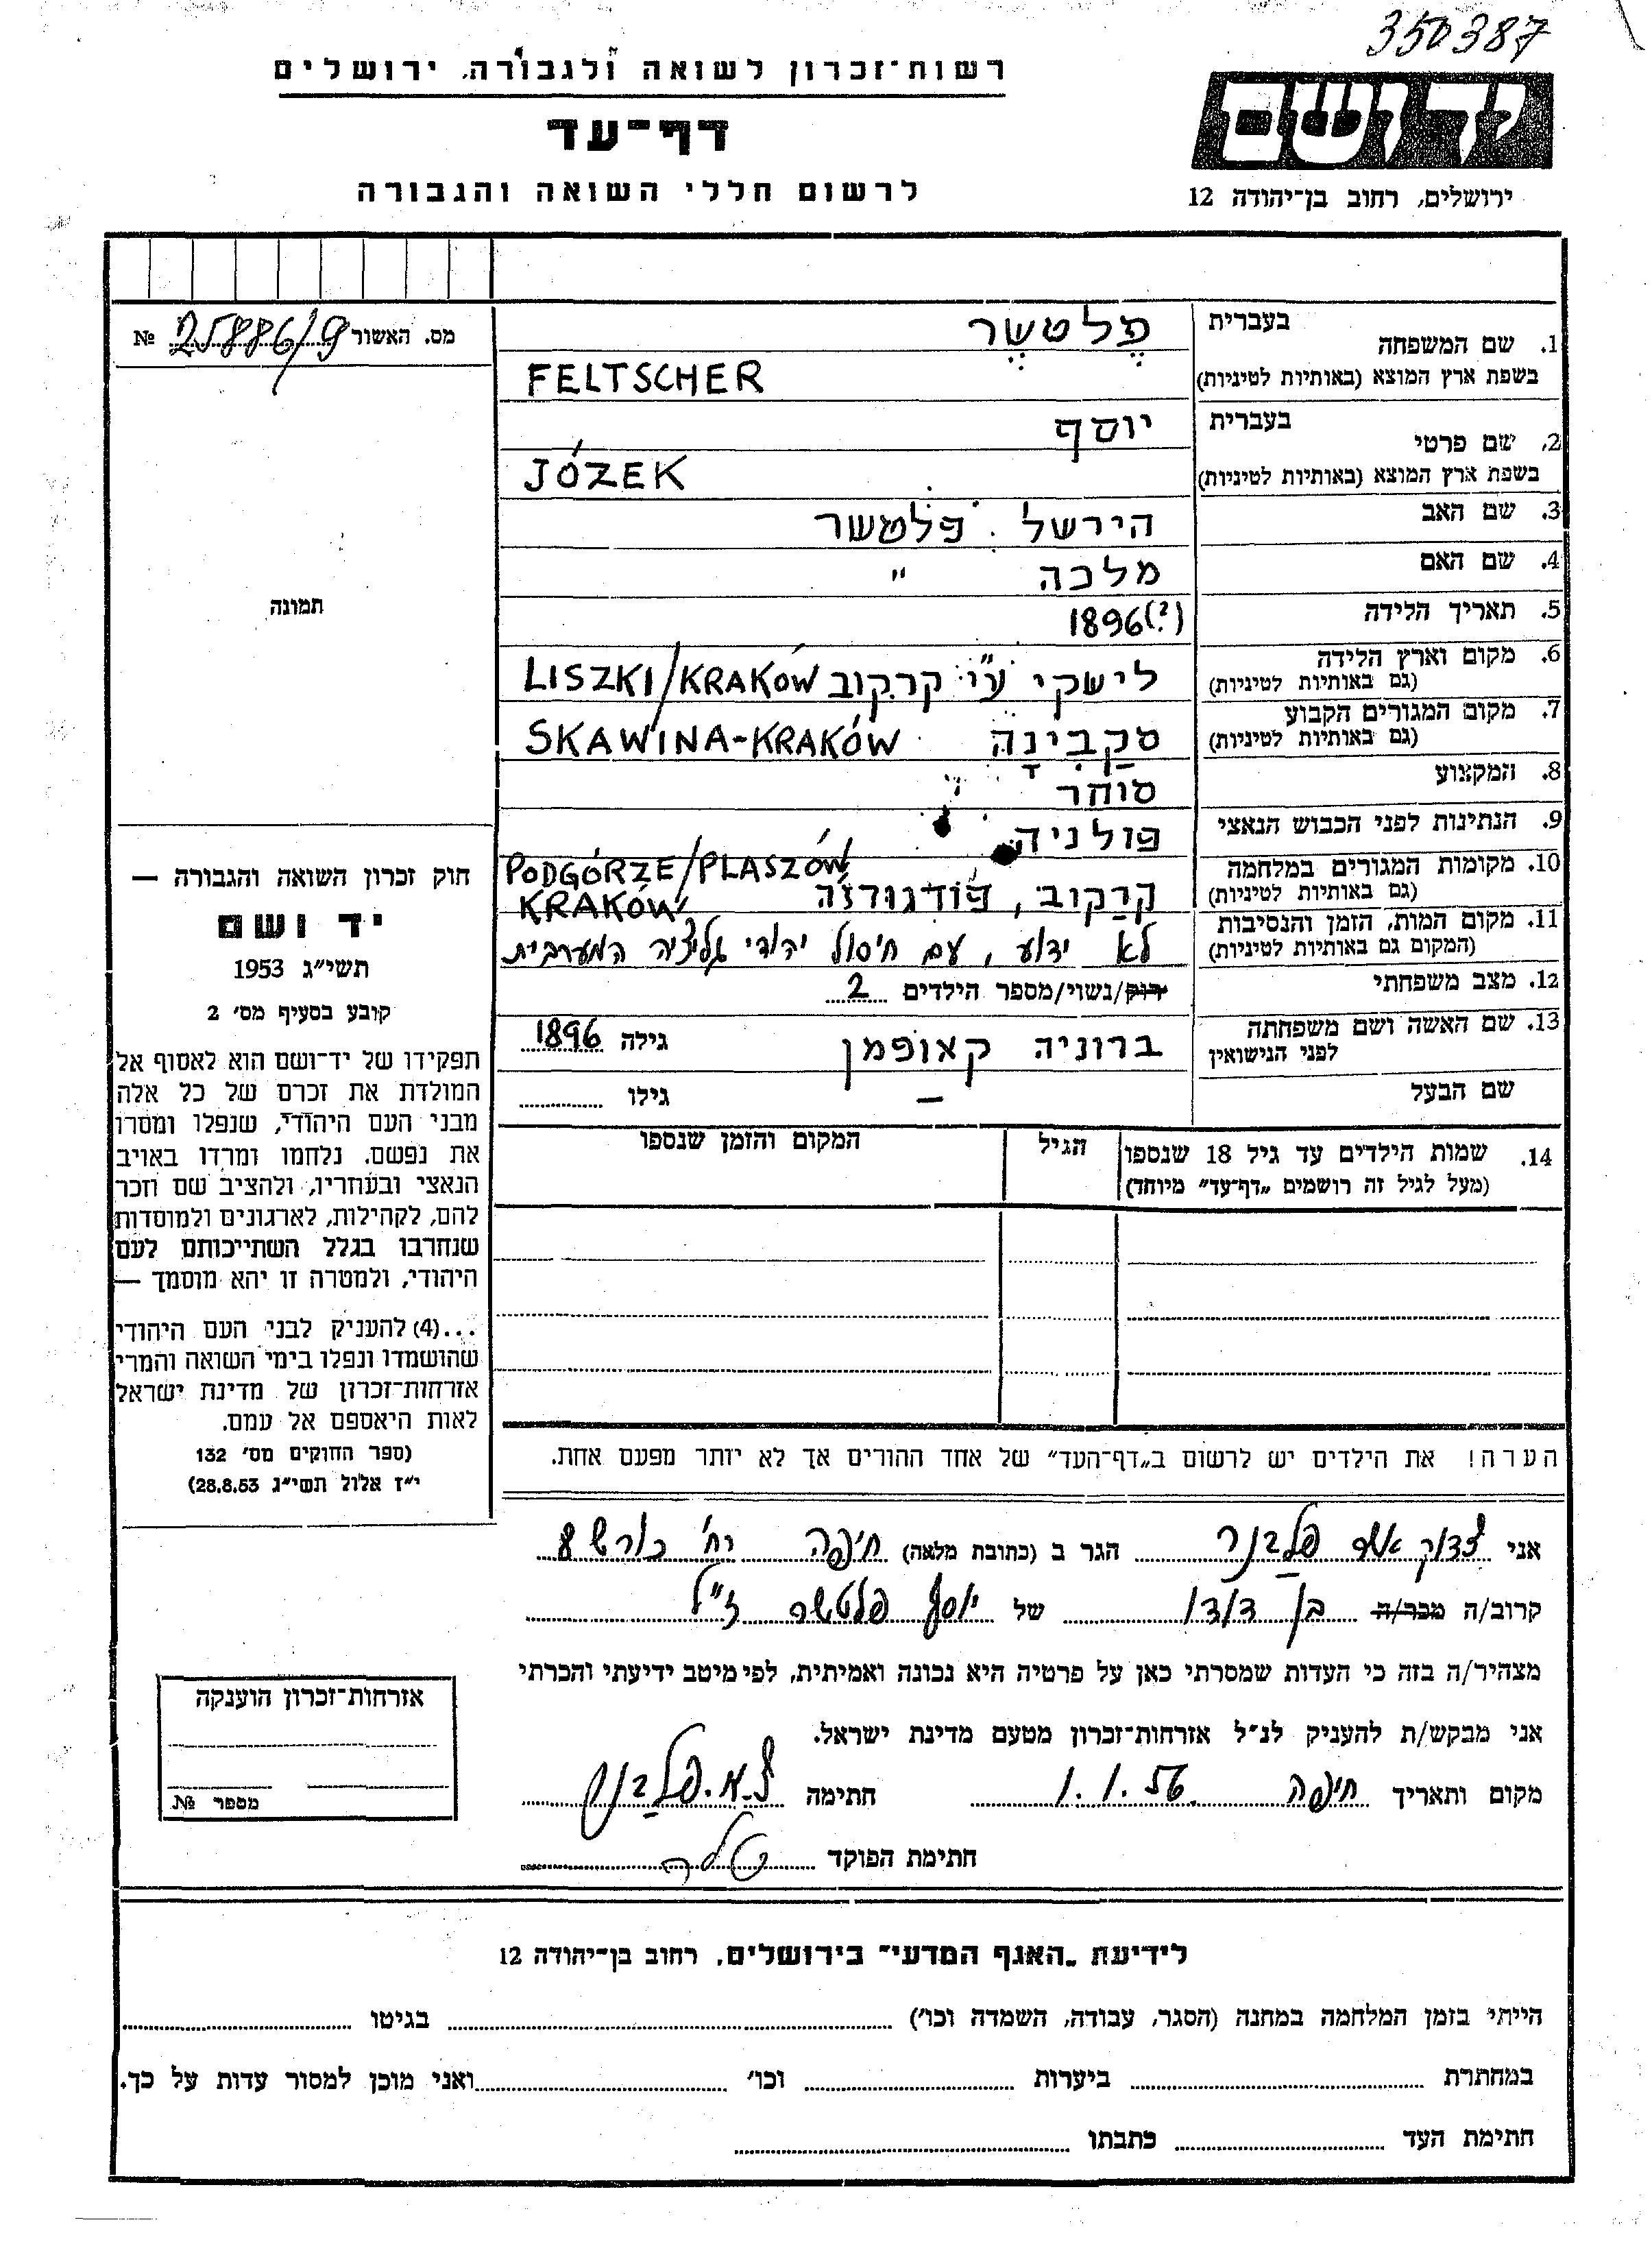 350387
רשות־זכרון לשואה ולגבורה, ירושלים
יד ושם
דף־עד
לרשום חללי השואה והגבורה
ירושלים, רחוב בן־יהודה 12
מס. האשור 25886/9 №
1. שם המשפחה
בעברית
פֶלטשֶר
בשפת ארץ המוצא (באותיות לטיניות)
FELTSCHER
2. שם פרטי
בעברית
יוסף
בשפת ארץ המוצא (באותיות לטיניות)
JÓZEK
3. שם האב
הירשל פלטשר
4. שם האם
מלכה "
5. תאריך הלידה
1896(?)
6. מקום וארץ הלידה
(גם באותיות לטיניות)
לישקי ע"י קרקוב LISZKI/KRAKÓW
7. מקום המגורים הקבוע
(גם באותיות לטיניות)
סקַבִינָה SKAWINA-KRAKÓW
8. המקצוע
סוחר
9. הנתינות לפני הכבוש הנאצי
פולניה
10. מקומות המגורים במלחמה
(גם באותיות לטיניות)
PODGÓRZE/PLASZÓW
קרקוב, פודגורזה KRAKÓW
11. מקום המות, הזמן והנסיבות
(המקום גם באותיות לטיניות)
לא ידוע, עם חיסול יהודי גליציה המערבית
12. מצב משפחתי
רוק/נשוי/מספר הילדים 2
13. שם האשה ושם משפחתה
לפני הנישואין
ברוניה קאופמן גילה 1896
שם הבעל
— גילו
14. שמות הילדים עד גיל 18 שנספו
(מעל לגיל זה רושמים „דף־עד" מיוחד)
הגיל
המקום והזמן שנספו
תמונה
חוק זכרון השואה והגבורה —
יד ושם
תשי"ג 1953
קובע בסעיף מס' 2
תפקידו של יד־ושם הוא לאסוף אל
המולדת את זכרם של כל אלה
מבני העם היהודי, שנפלו ומסרו
את נפשם, נלחמו ומרדו באויב
הנאצי ובעוזריו, ולהציב שם וזכר
להם, לקהילות, לארגונים ולמוסדות
שנחרבו בגלל השתייכותם לעם
היהודי, ולמטרה זו יהא מוסמך —
...(4) להעניק לבני העם היהודי
שהושמדו ונפלו בימי השואה והמרי
אזרחות־זכרון של מדינת ישראל
לאות היאספם אל עמם.
(ספר החוקים מס' 132
י"ז אלול תשי"ג 28.8.53)
הערה! את הילדים יש לרשום ב„דף־העד" של אחד ההורים אך לא יותר מפעם אחת.
אני צדוק אשר פלבנר הגר ב (כתובת מלאה) חיפה רח' כורש 8
קרוב/ה מכר/ה בן דודו של יוסף פלטשר ז"ל
מצהיר/ה בזה כי העדות שמסרתי כאן על פרטיה היא נכונה ואמיתית, לפי מיטב ידיעתי והכרתי
אני מבקש/ת להעניק לנ"ל אזרחות־זכרון מטעם מדינת ישראל.
מקום ותאריך חיפה 1.1.56 חתימה צ.א. פלבנר
חתימת הפוקד
אזרחות־זכרון הוענקה
מספר №
לידיעת „האגף המדעי" בירושלים, רחוב בן־יהודה 12
הייתי בזמן המלחמה במחנה (הסגר, עבודה, השמדה וכו') בגיטו
במחתרת ביערות וכו' ואני מוכן למסור עדות על כך.
חתימת העד כתבתו